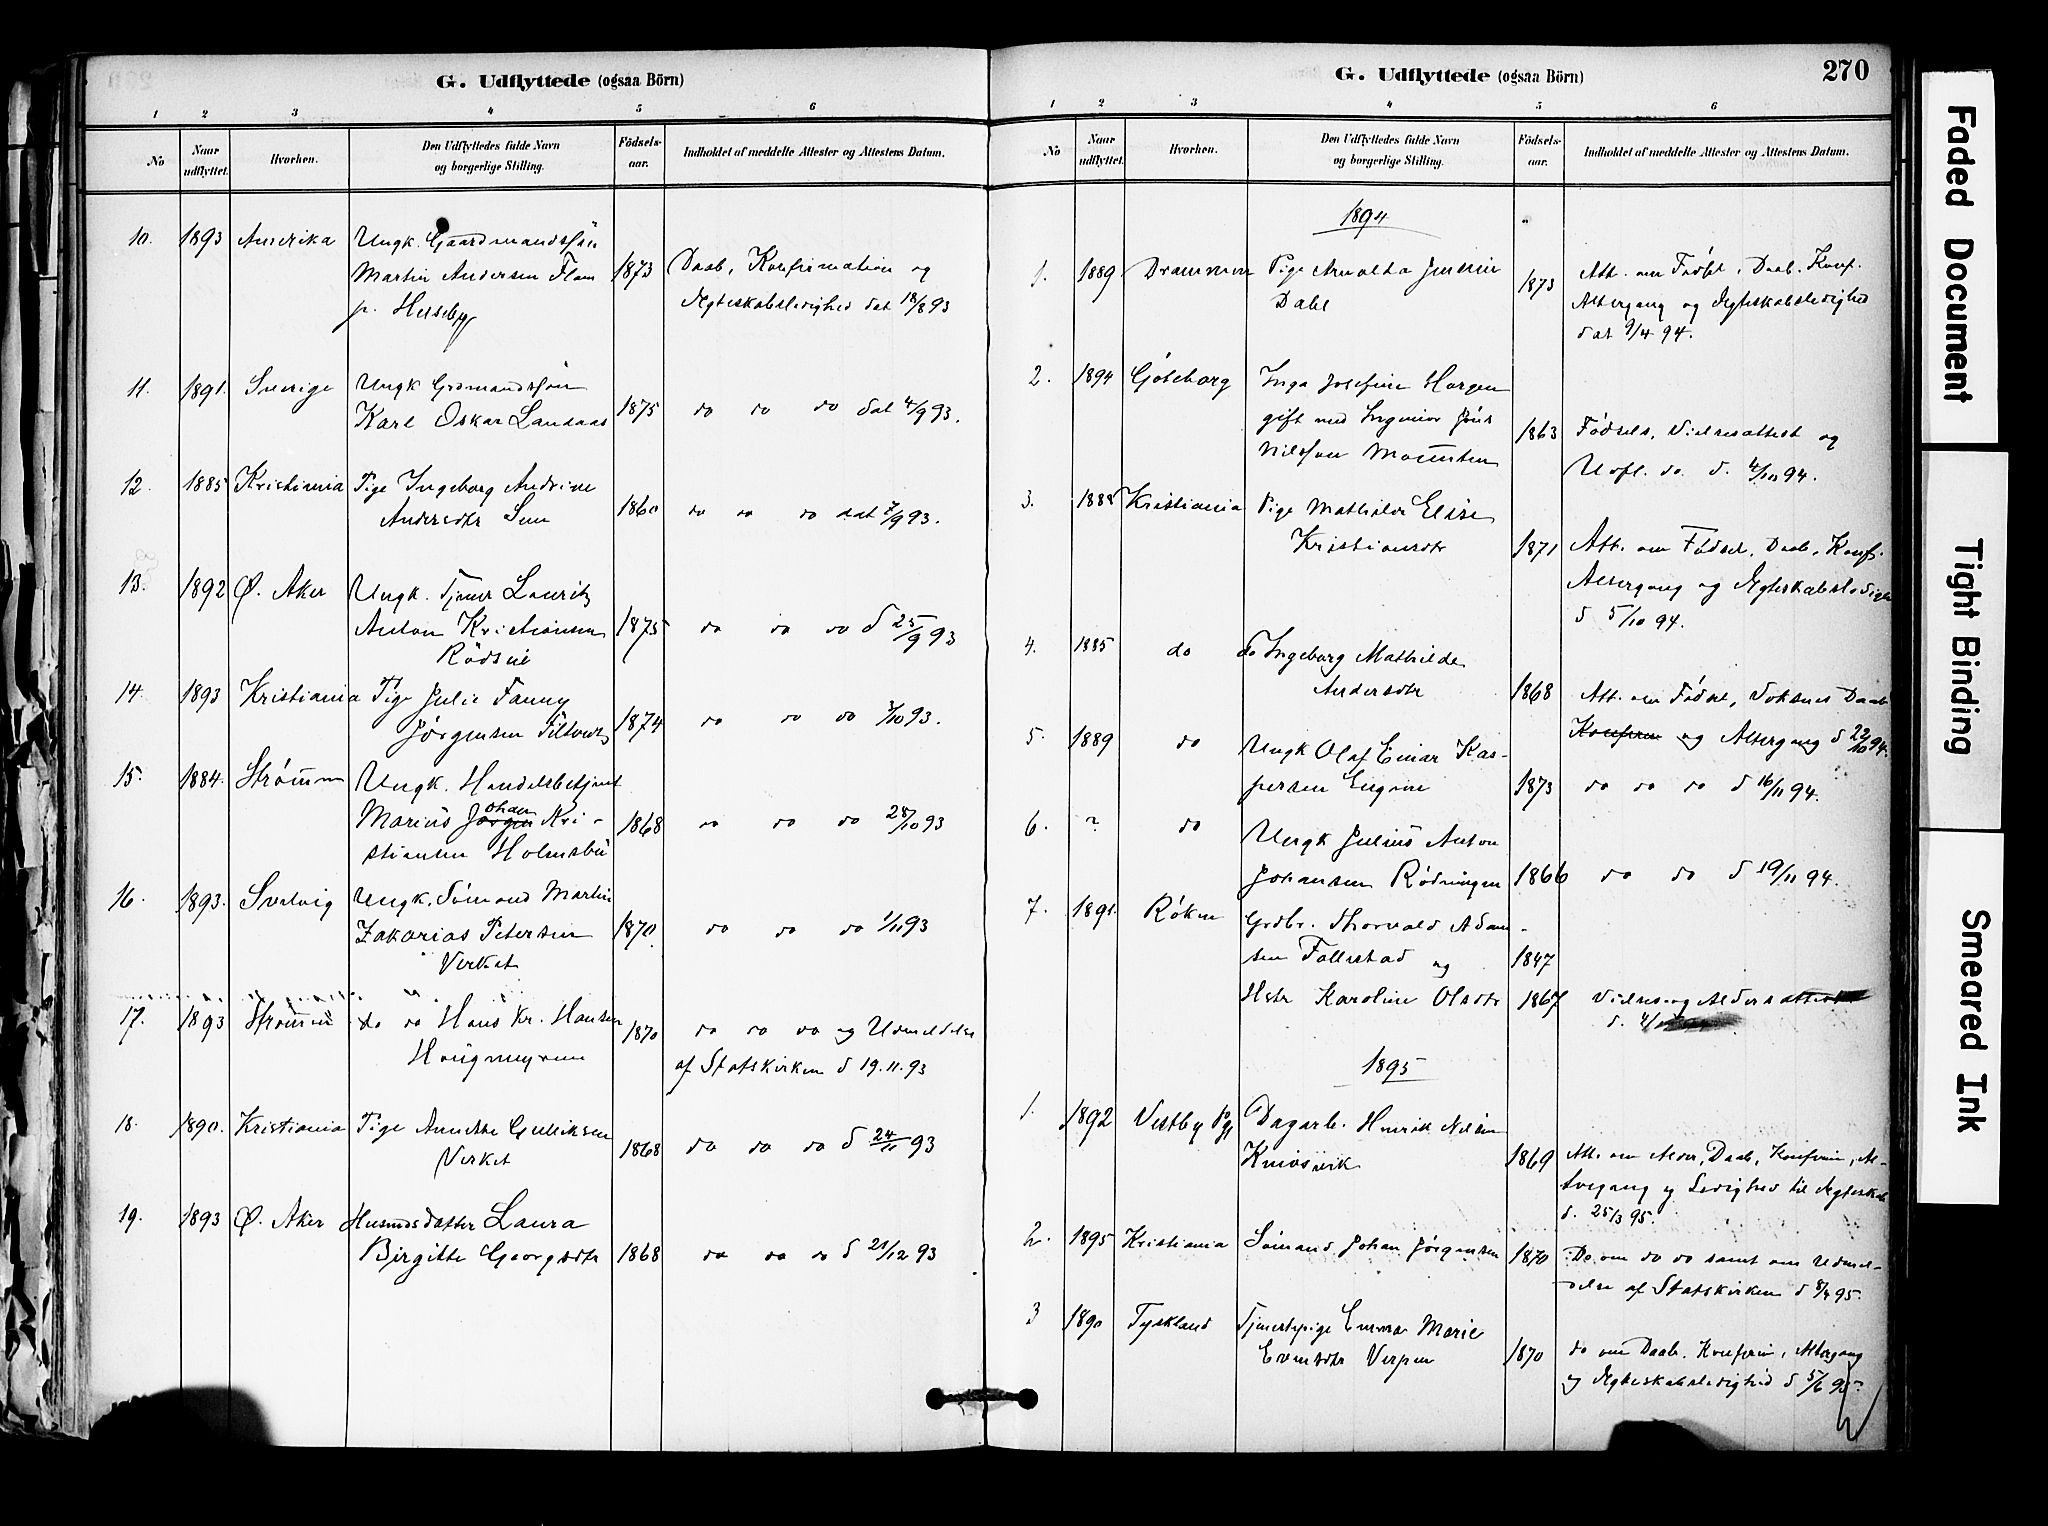 G. Udflyttede (ogsaa Börn)
1 2 3 4 5 6
No Naar udflyttet. Hvorhen. Den Udflyttedes fulde Navn og borgerlige Stilling. Födsels-aar. Indholdet af meddelte Attester og Attestens Datum.
10. 1893 Amerika Ungk. Gaardmandssön
Martin Andersen 1873 Daab, Konfirmation og
p. Huseby Ægteskabsledighed dat 18/8 93
11. 1891. Sverige Ungk Grdmandssön
Karl Oskar Landaas 1875 do do do dat 4/9 93.
12. 1885 Kristiania Pige Ingeborg Andrine
Andersdtr 1860 do do do dat 7/9 93.
13. 1892 Ø. Aker Ungk. Tjener Lauritz
Anton Kristiansen 1875 do do do d 25/9 93
14. 1893 Kristiania Pige Julie Fanny
Jørgensen 1874 do do do 3/10 93.
15. 1884. Strømm Ungk. Handelsbetjent
Marius Johan Kri- 1868 do do do 28/10 93
stiansen Holmsbu
16. 1893. Svelvig Ungk. Sömand Martin
Zakarias Petersen 1870. do do do 1/11 93
Verket
17. 1893 Strømm do do Hans Kr. Hansen 1870 do do do og Udmeldelse
af Statskirken d 19.11.93
18. 1890. Kristiania Pige Annette Gulliksen
Verket 1868 do do do d 24/11 93
19. 1893 Ø. Aker Husmdsdatter Laura
Birgitte Georgsdtr 1868 do do do d 21/12 93
G. Udflyttede (ogsaa Börn) 270
1 2 3 4 5 6
No Naar udflyttet. Hvorhen. Den Udflyttedes fulde Navn og borgerlige Stilling. Födsels-aar. Indholdet af meddelte Attester og Attestens Datum.
1894
1. 1889 Drammen Pige
Dahl 1873 Att. om Födsel, Daab. Konf.
Altergang og Ægteskabsledighed
dat 9/4 94.
2. 1894 Göteborg Inga Josefine Horgen
gift med Ingeniør Jöns
Nilsson 1863 Fødsels, Vielsesattest og
Udfl. do. d. 4/10 94.
3. 1888 Kristiania Pige Mathilde Elise
Kristiansdtr 1871 Att. om Födsel, Daab, Konf.
Altergang og Ægteskabsledighed
d 5/10 94.
4. 1885 do do Ingeborg Mathilde
Andersdtr 1868 Att. om Födsel, Voksnes Daab
Konfirm og Altergang d 22/10 94.
5. 1889 do Ungk Olaf Einar Kas-
persen Engene 1873 do do do d 16/11 94.
6. ? do Ungk Julius Anton
Johansen Rødningen 1866 do do d 19/11 94.
7. 1891. Røken Grdbr. Thorvald Adam-
sen Follestad og 1847
Hstr Karoline Olsdtr 1867 Vielses og Aldersattest
d. 4/
1895
1. 1892 Vestby Pgj Dagarb. Henrik Nilsen
Knivsvik 1869 Att. om Alder, Daab, Konfirm, Al-
tergang og Ledighed til Ægteskab
d. 25/3 95.
2. 1895 Kristiania Sömand Johan Jörgensen 1870 Do om do do samt om Udmel-
delse af Statskirken d 8/4 95.
3 1890 Tyskland Tjenestepige Emma Marie
Evensdtr Verpen 1870 do om Daab, Konfirm, Altergang
og Ægteskabsledighed d 5/6 95
Faded Document
Tight Binding
Smeared Ink